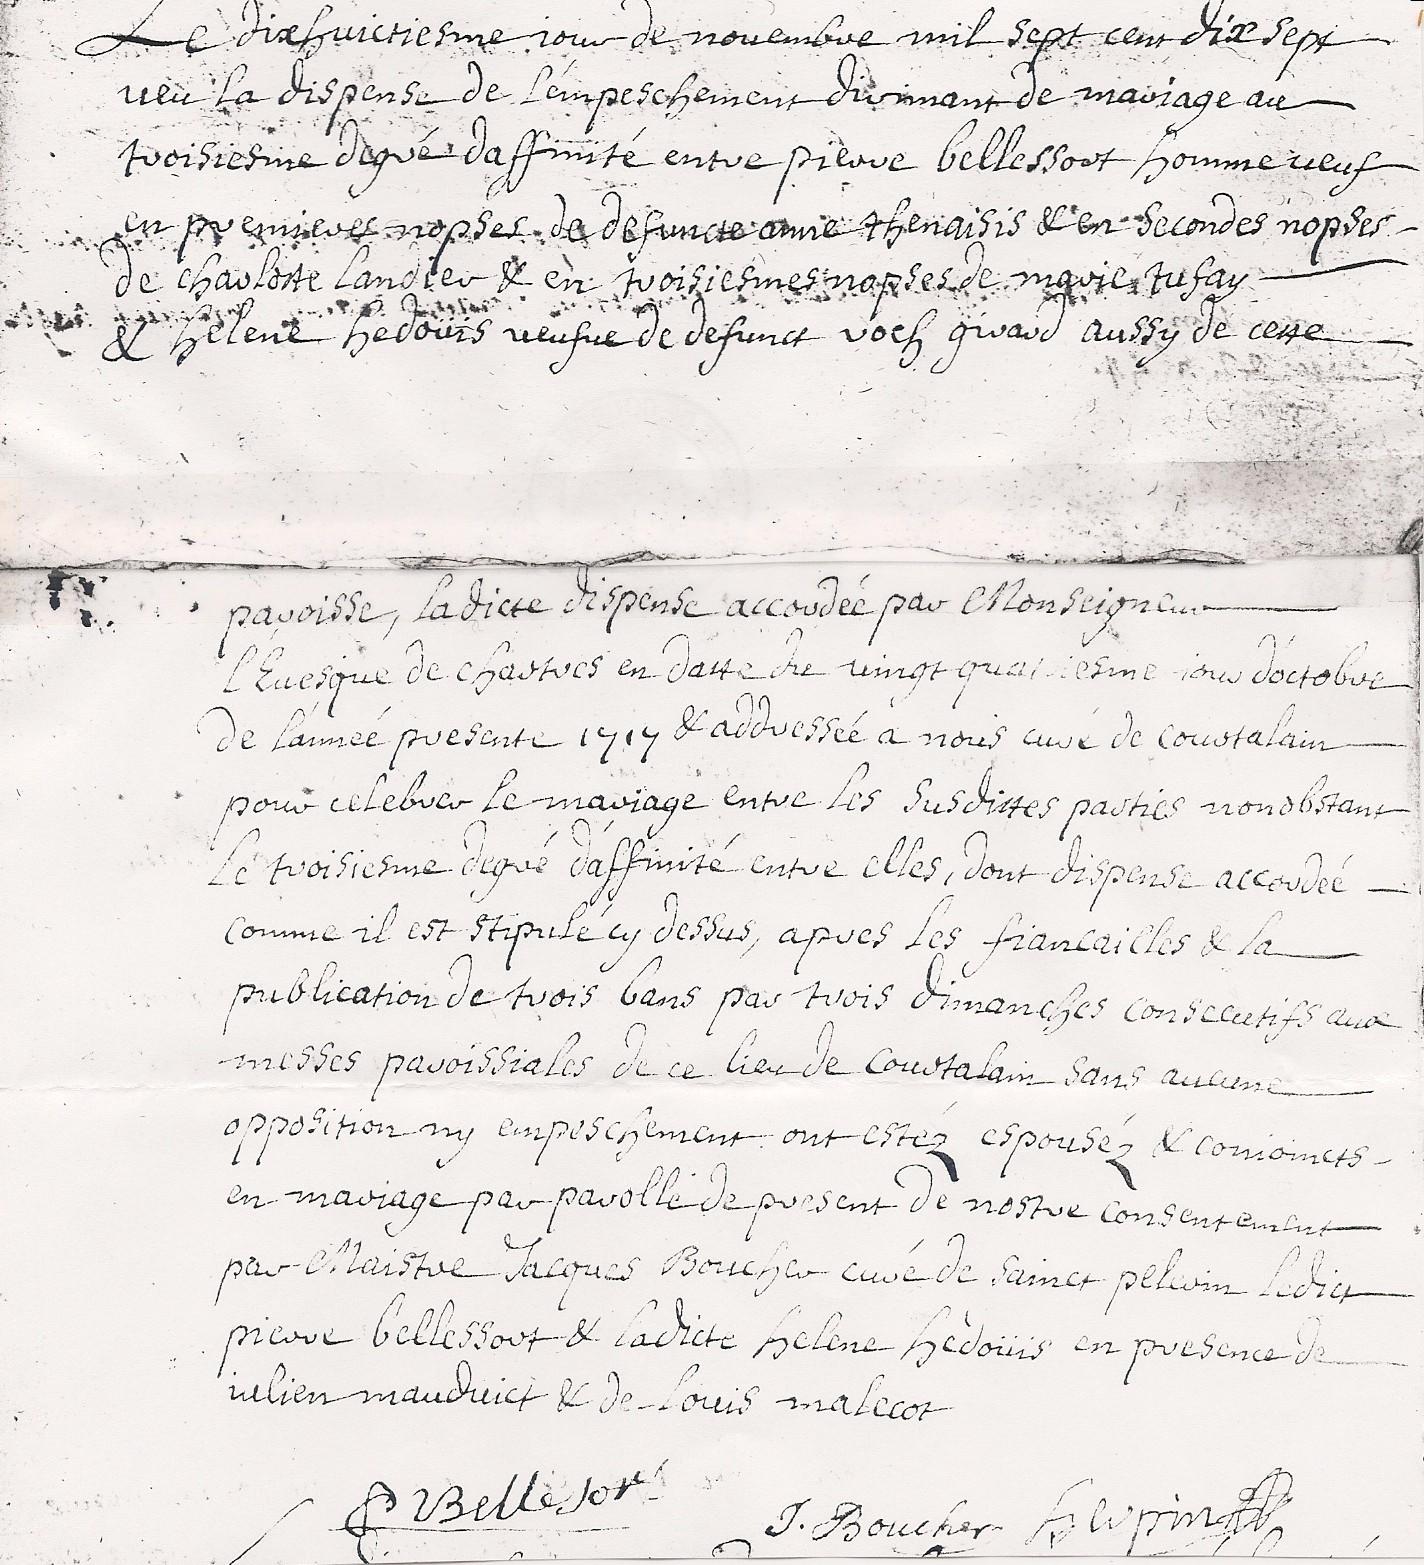 Le dixhuictiesme iour de novembre mil sept cent dix sept
veu la dispense de l'émpeschement dirimant de mariage au
troisiesme degré d'affinité entre pierre bellessort homme veuf
en premieres nopses de defuncte anne thenaisis & en secondes nopses
de charlotte landier & en troisiesmes nopses de marie tufay
& helene hedouis veufue de defunct roch girard aussy de cette
paroisse, ladicte dispense accordéé par Monseigneur
l'Evesque de chartres en datte du vingt quatriesme iour d'octobre
de l'annéé presente 1717 & addresséé a nous curé de courtalain
pour celebrer le mariage entre les susdittes parties nonobstant
le troisiesme degré d'affinité entre elles, dont dispense accordéé
comme il est stipulé cy dessus, apres les fiancailles & la
publication de trois bans par trois dimanches consecutifs aux
messes paroissiales de ce lieu de Courtalain sans aucune
opposition ny empeschement ont estéz espouséz & conioincts
en mariage par parolle de present de nostre consentement
par Maistre Jacques Boucher curé de sainct pelerin ledict
pierre bellessort & ladicte helene hedoüis en presence de
iulien mauduict & de louis malecot
P Bellesort
J. Boucher